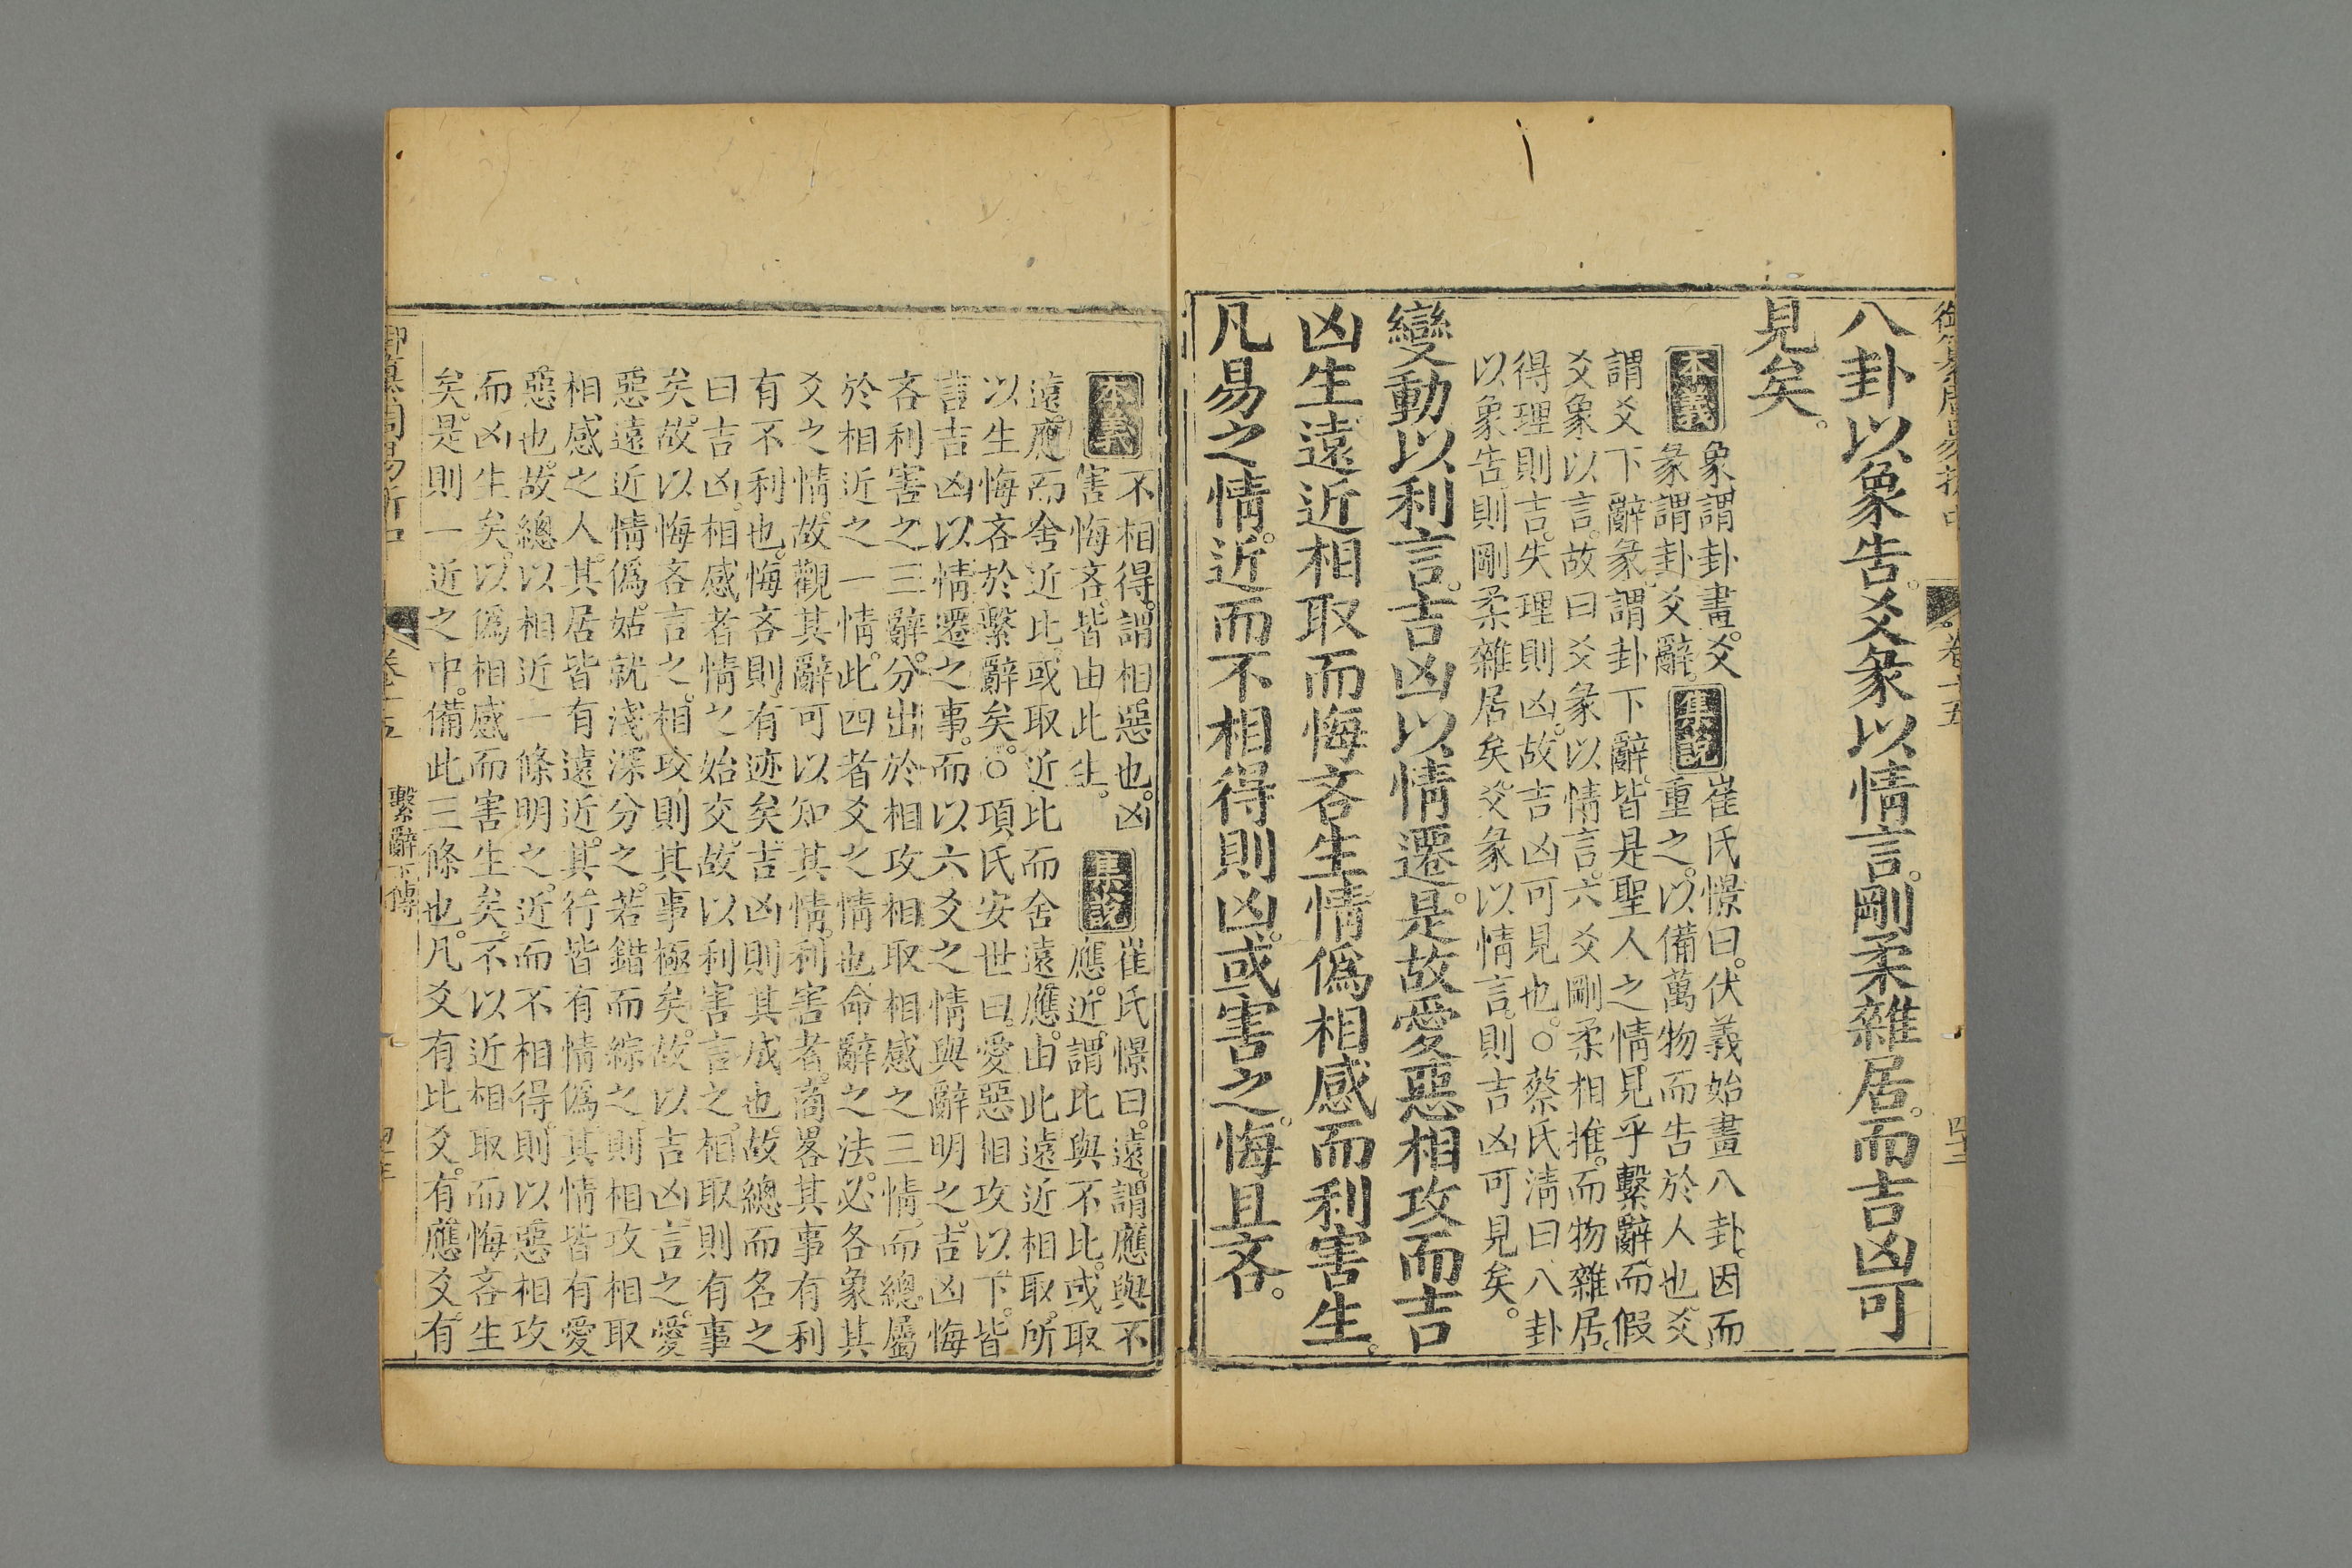 卷十五
四十二
八卦以象告。爻彖以情言。剛柔雜居。而吉凶可
見矣。
本義
象謂卦畫。爻
彖謂卦爻辭。
集說
崔氏憬曰。伏羲始畫八卦。因而
重之。以備萬物而告於人也。爻
謂爻下辭。彖謂卦下辭。皆是聖人之情。見乎繫辭。而假
爻象以言。故曰爻彖以情言。六爻剛柔相推。而物雜居。
得理則吉。失理則凶。故吉凶可見也。○蔡氏淸曰八卦
以象告。則剛柔雜居矣。爻彖以情言。則吉凶可見矣。
變動以利言。吉凶以情遷。是故愛惡相攻而吉
凶生。遠近相取而悔吝生。情僞相感而利害生。
凡易之情。近而不相得則凶。或害之。悔且吝。
本義
不相得。謂相惡也。凶
害悔吝。皆由此生。
集說
崔氏憬曰。遠謂應與不
應。近謂比與不比。或取
遠應而舍近比。或取近比而舍遠應。由此遠近相取。所
以生悔吝於繫辭矣。○項氏安世曰。愛惡相攻以下。皆
言吉凶以情遷之事。而以六爻之情與辭明之。吉凶悔
吝利害之三辭。分出於相攻相取相感之三情。而總屬
於相近之一情。此四者爻之情也。命辭之法。必各象其
爻之情。故觀其辭可以知其情。利害者。商畧其事有利
有不利也。悔吝則有迹矣。吉凶則其成也。故總而名之
曰吉凶。相感者情之始交。故以利害言之。相取則有事
矣。故以悔吝言之。相攻則其事極矣。故以吉凶言之。愛
惡遠近情僞。姑就淺深分之。若錯而綜之。則相攻相取
相感之人。其居皆有遠近。其行皆有情僞。其情皆有愛
惡也。故總以相近一條明之。近而不相得。則以惡相攻
而凶生矣。以僞相感而害生矣。不以近相取而悔吝生
矣。是則一近之中。備此三條也。凡爻有比爻。有應爻。有
御纂周易折中
卷十五
繫辭下傳